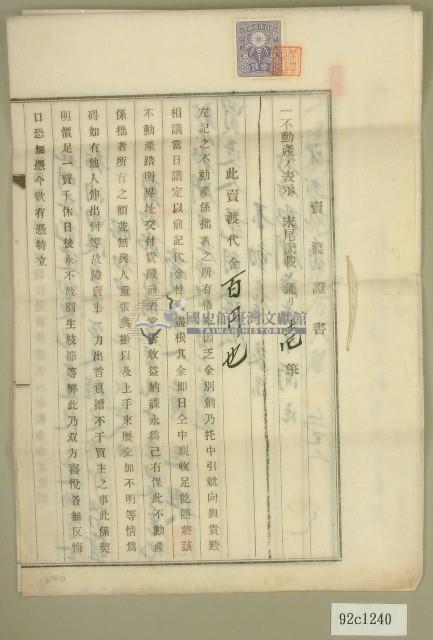 賣渡證書
一不動產ノ表示 末尾記載ノ通リ 壱筆
此賣渡代金百円也
左記之不動產係拙者之所有
因乏金別創乃托中引就向與貴殿
相議當日議定以前記代金
盡根其金即日仝中親收足訖隨將該
不動產踏明界址交付貴殿前去掌管收益納課永為己有保此不動產
係拙者所有之額並無與人重張典掛以及上手來歷交加不明等情為
碍如有他人伸出何等故障賣主一力出首抵擋不干買主之事此係契
明價足一賣千休日後永不敢別生枝節等弊此乃双方喜悅各無反悔
口恐無憑今欲有憑特立
國史館臺灣文獻館
TAIWAN HISTORICA
1240
92c1240